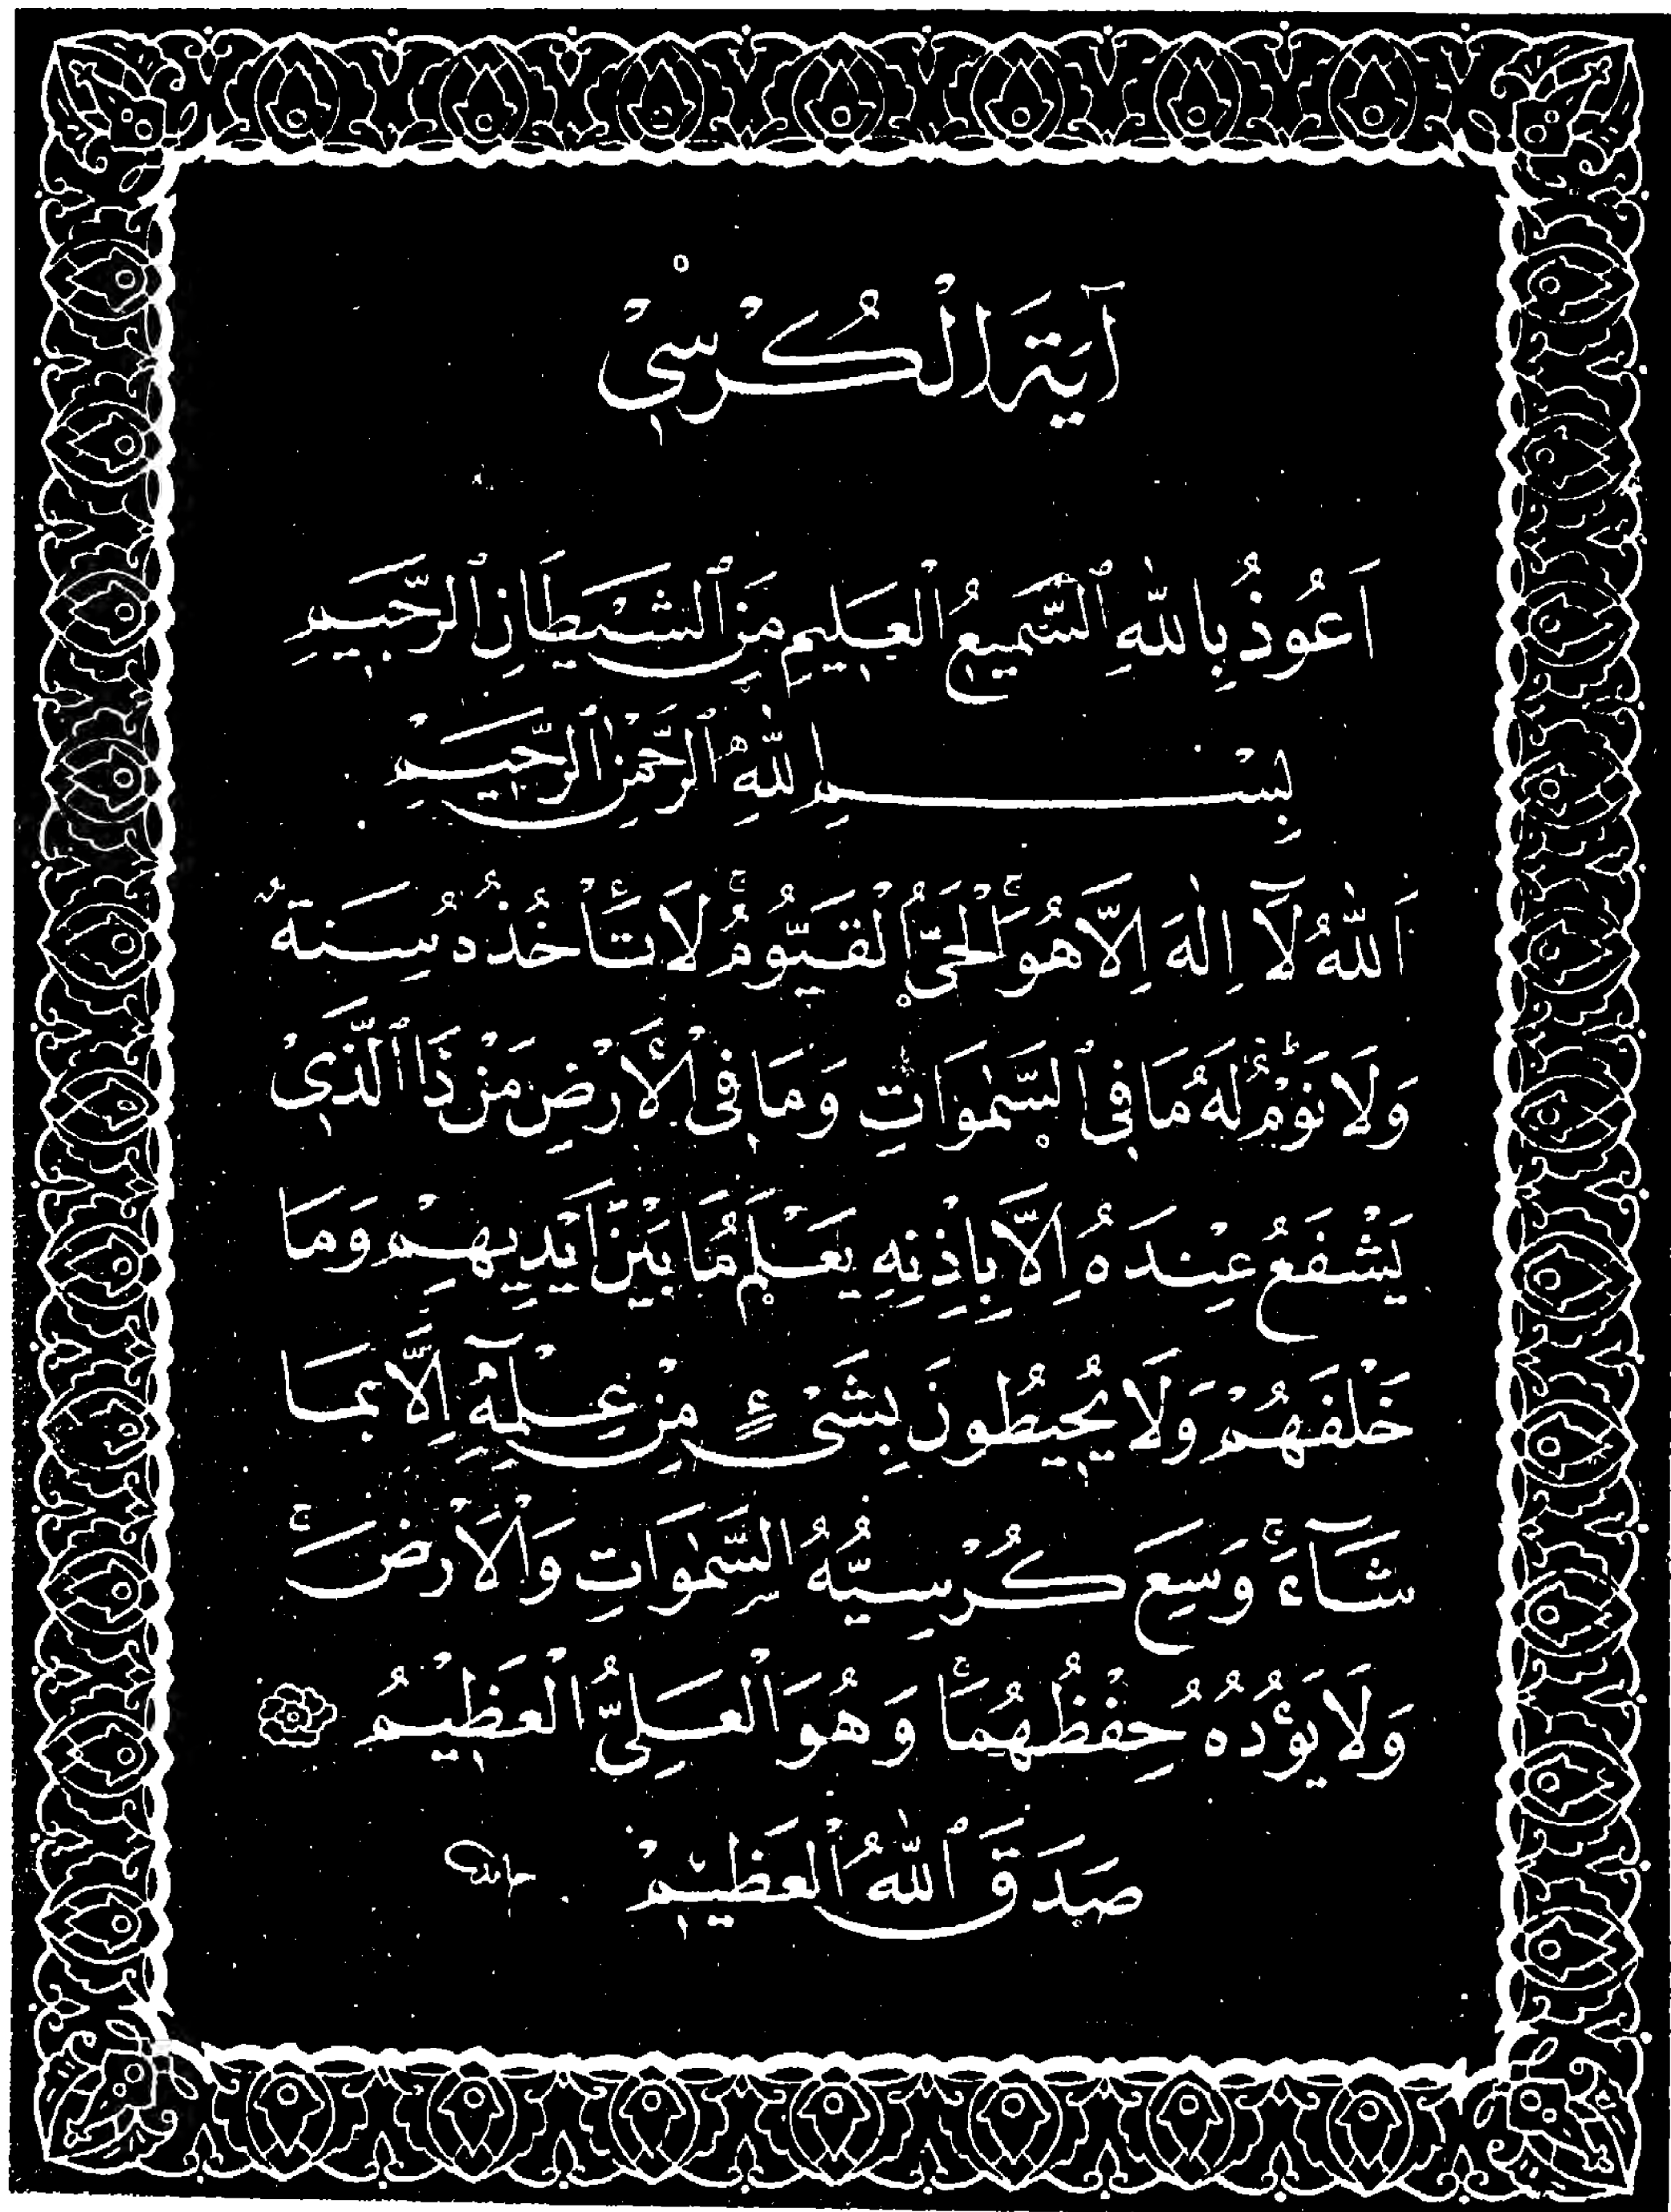 آيَةَ الْكُرْسِيْ
اَعُوذُ بِاللّٰهِ ٱلسَّمِيعُ ٱلْعَلِيمِ مِنَ ٱلشَّيْطَانِ ٱلرَّجِيمِ
بِسْمِ اللّٰهِ ٱلرَّحْمٰنِ ٱلرَّحِيمْ
اَللّٰهُ لَآ اِلٰهَ اِلَّا هُوَۚ اَلْحَيُّ الْقَيُّومُۚ لَا تَأْخُذُهُ سِنَةٌ
وَلَا نَوْمٌۜ لَهُ مَا فِي ٱلسَّمٰوَاتِ وَمَا فِي الْأَرْضِ مَنْ ذَا ٱلَّذِيْ
يَشْفَعُ عِنْدَهُ اِلَّا بِاِذْنِهِ يَعْلَمُ مَا بَيْنَ اَيْدِيهِمْ وَمَا
خَلْفَهُمْ وَلَا يُحِيطُونَ بِشَىْءٍ مِنْ عِلْمِهِٓ اِلَّا بِمَا
شَآءَۚ وَسِعَ كُرْسِيُّهُ السَّمٰوَاتِ وَالْاَرْضَۚ
وَلَا يَؤُدُهُ حِفْظُهُمَاۚ وَهُوَ الْعَلِيُّ الْعَظِيْمُ
صَدَقَ ٱللّٰهُ ٱلْعَظِيْمْ